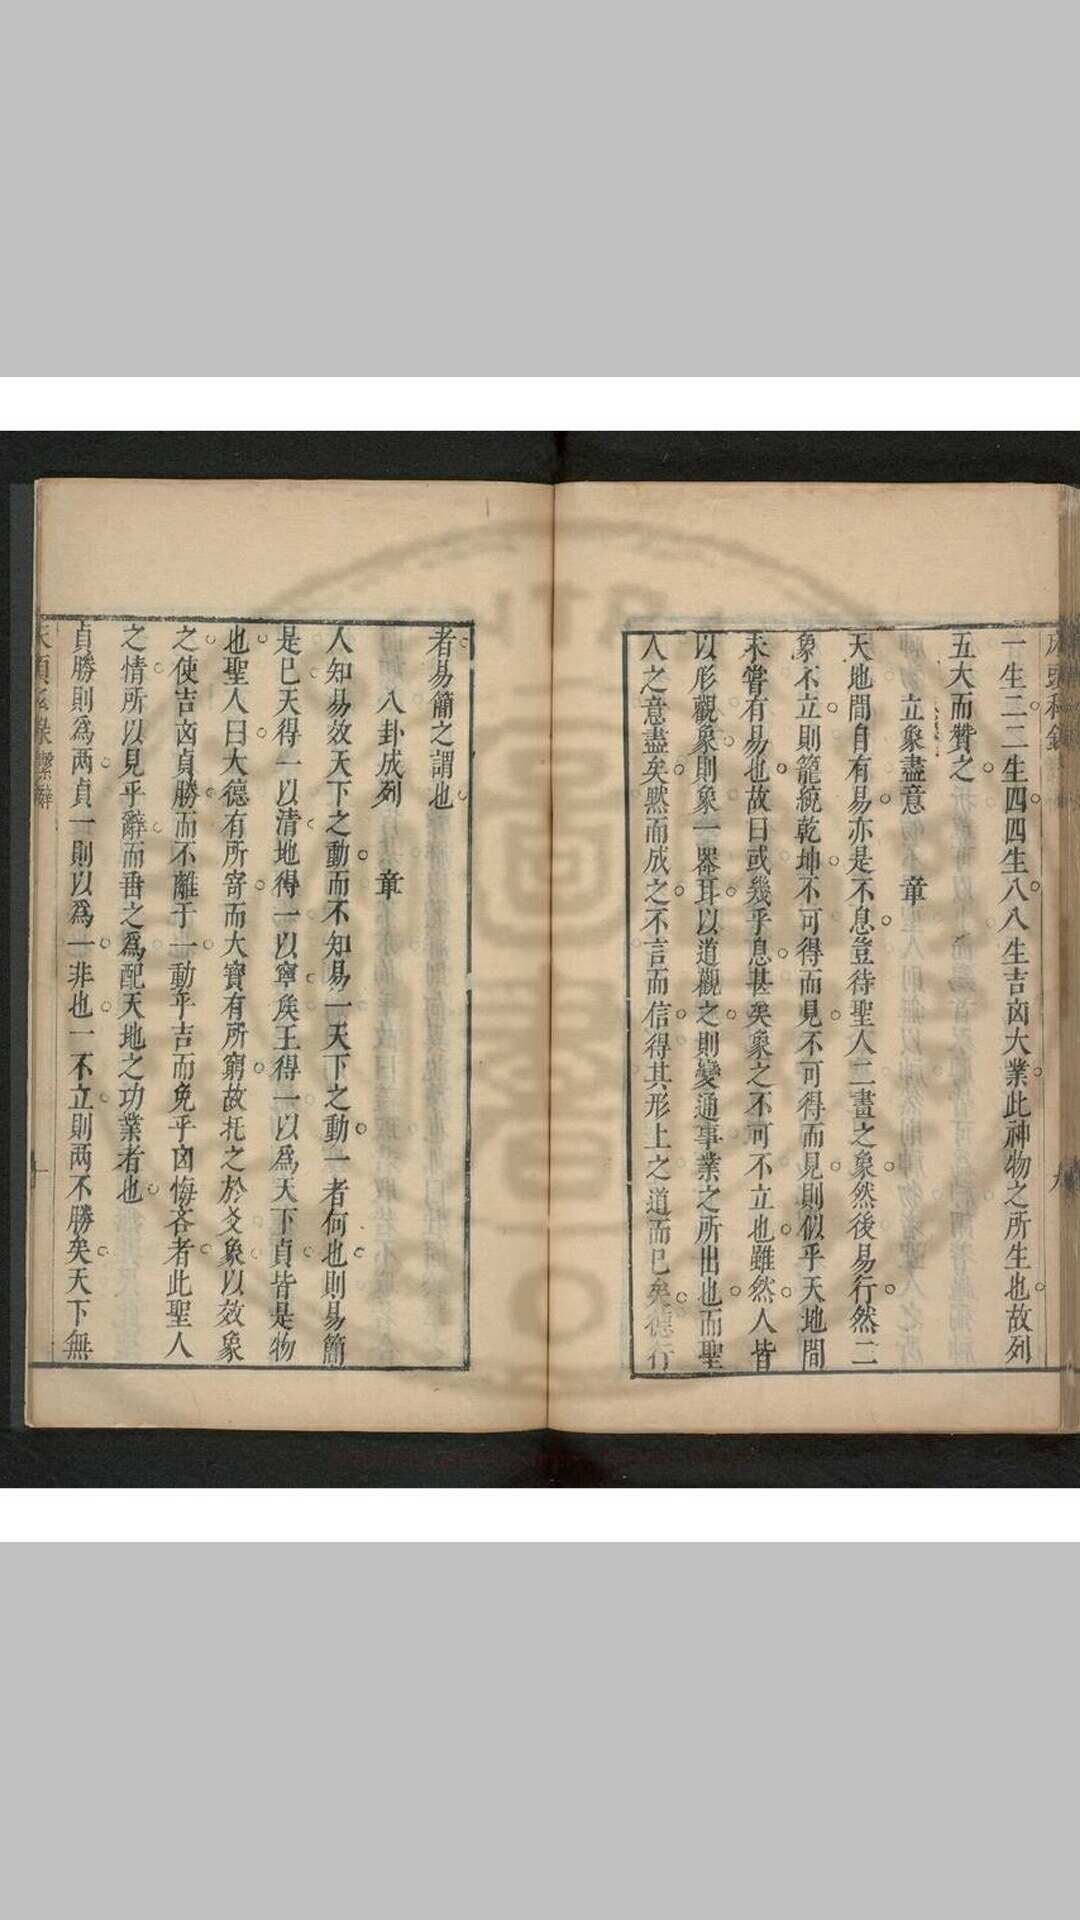 一生二二生四四生八八生吉凶大業此神物之所生也故列
五大而贊之
立象盡意　章
天地間自有易亦是不息豈待聖人二畫之象然後易行然二
象不立則籠統乾坤不可得而見不可得而見則似乎天地間
未嘗有易也故曰或幾乎息甚矣象之不可不立也雖然人皆
以形觀象則象一器耳以道觀之則變通事業之所出也而聖
人之意盡矣默而成之不言而信得其形上之道而已矣德行
者易簡之謂也
八卦成列　章
人知易效天下之動而不知易一天下之動一者何也則易簡
是已天得一以清地得一以寧矦王得一以爲天下貞皆是物
也聖人曰大德有所寄而大寶有所窮故托之於爻象以效象
之使吉凶貞勝而不離于一動乎吉而免乎凶悔吝者此聖人
之情所以見乎辭而垂之爲配天地之功業者也
貞勝則爲两貞一則以爲一非也一不立則两不勝矣天下無